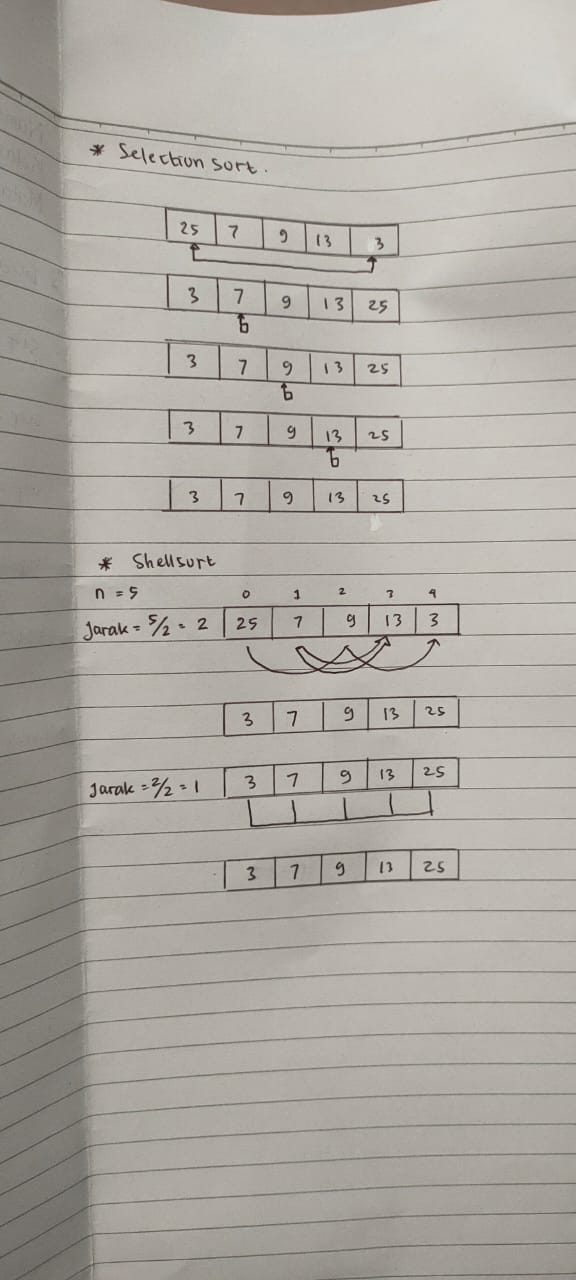 * Selection sort.
25 7 9 13 3
3 7 9 13 25
3 7 9 13 25
3 7 9 13 25
3 7 9 13 25
* Shellsort
n = 5 0 1 2 3 4
Jarak = 5/2 = 2 25 7 9 13 3
3 7 9 13 25
Jarak = 2/2 = 1 3 7 9 13 25
3 7 9 13 25